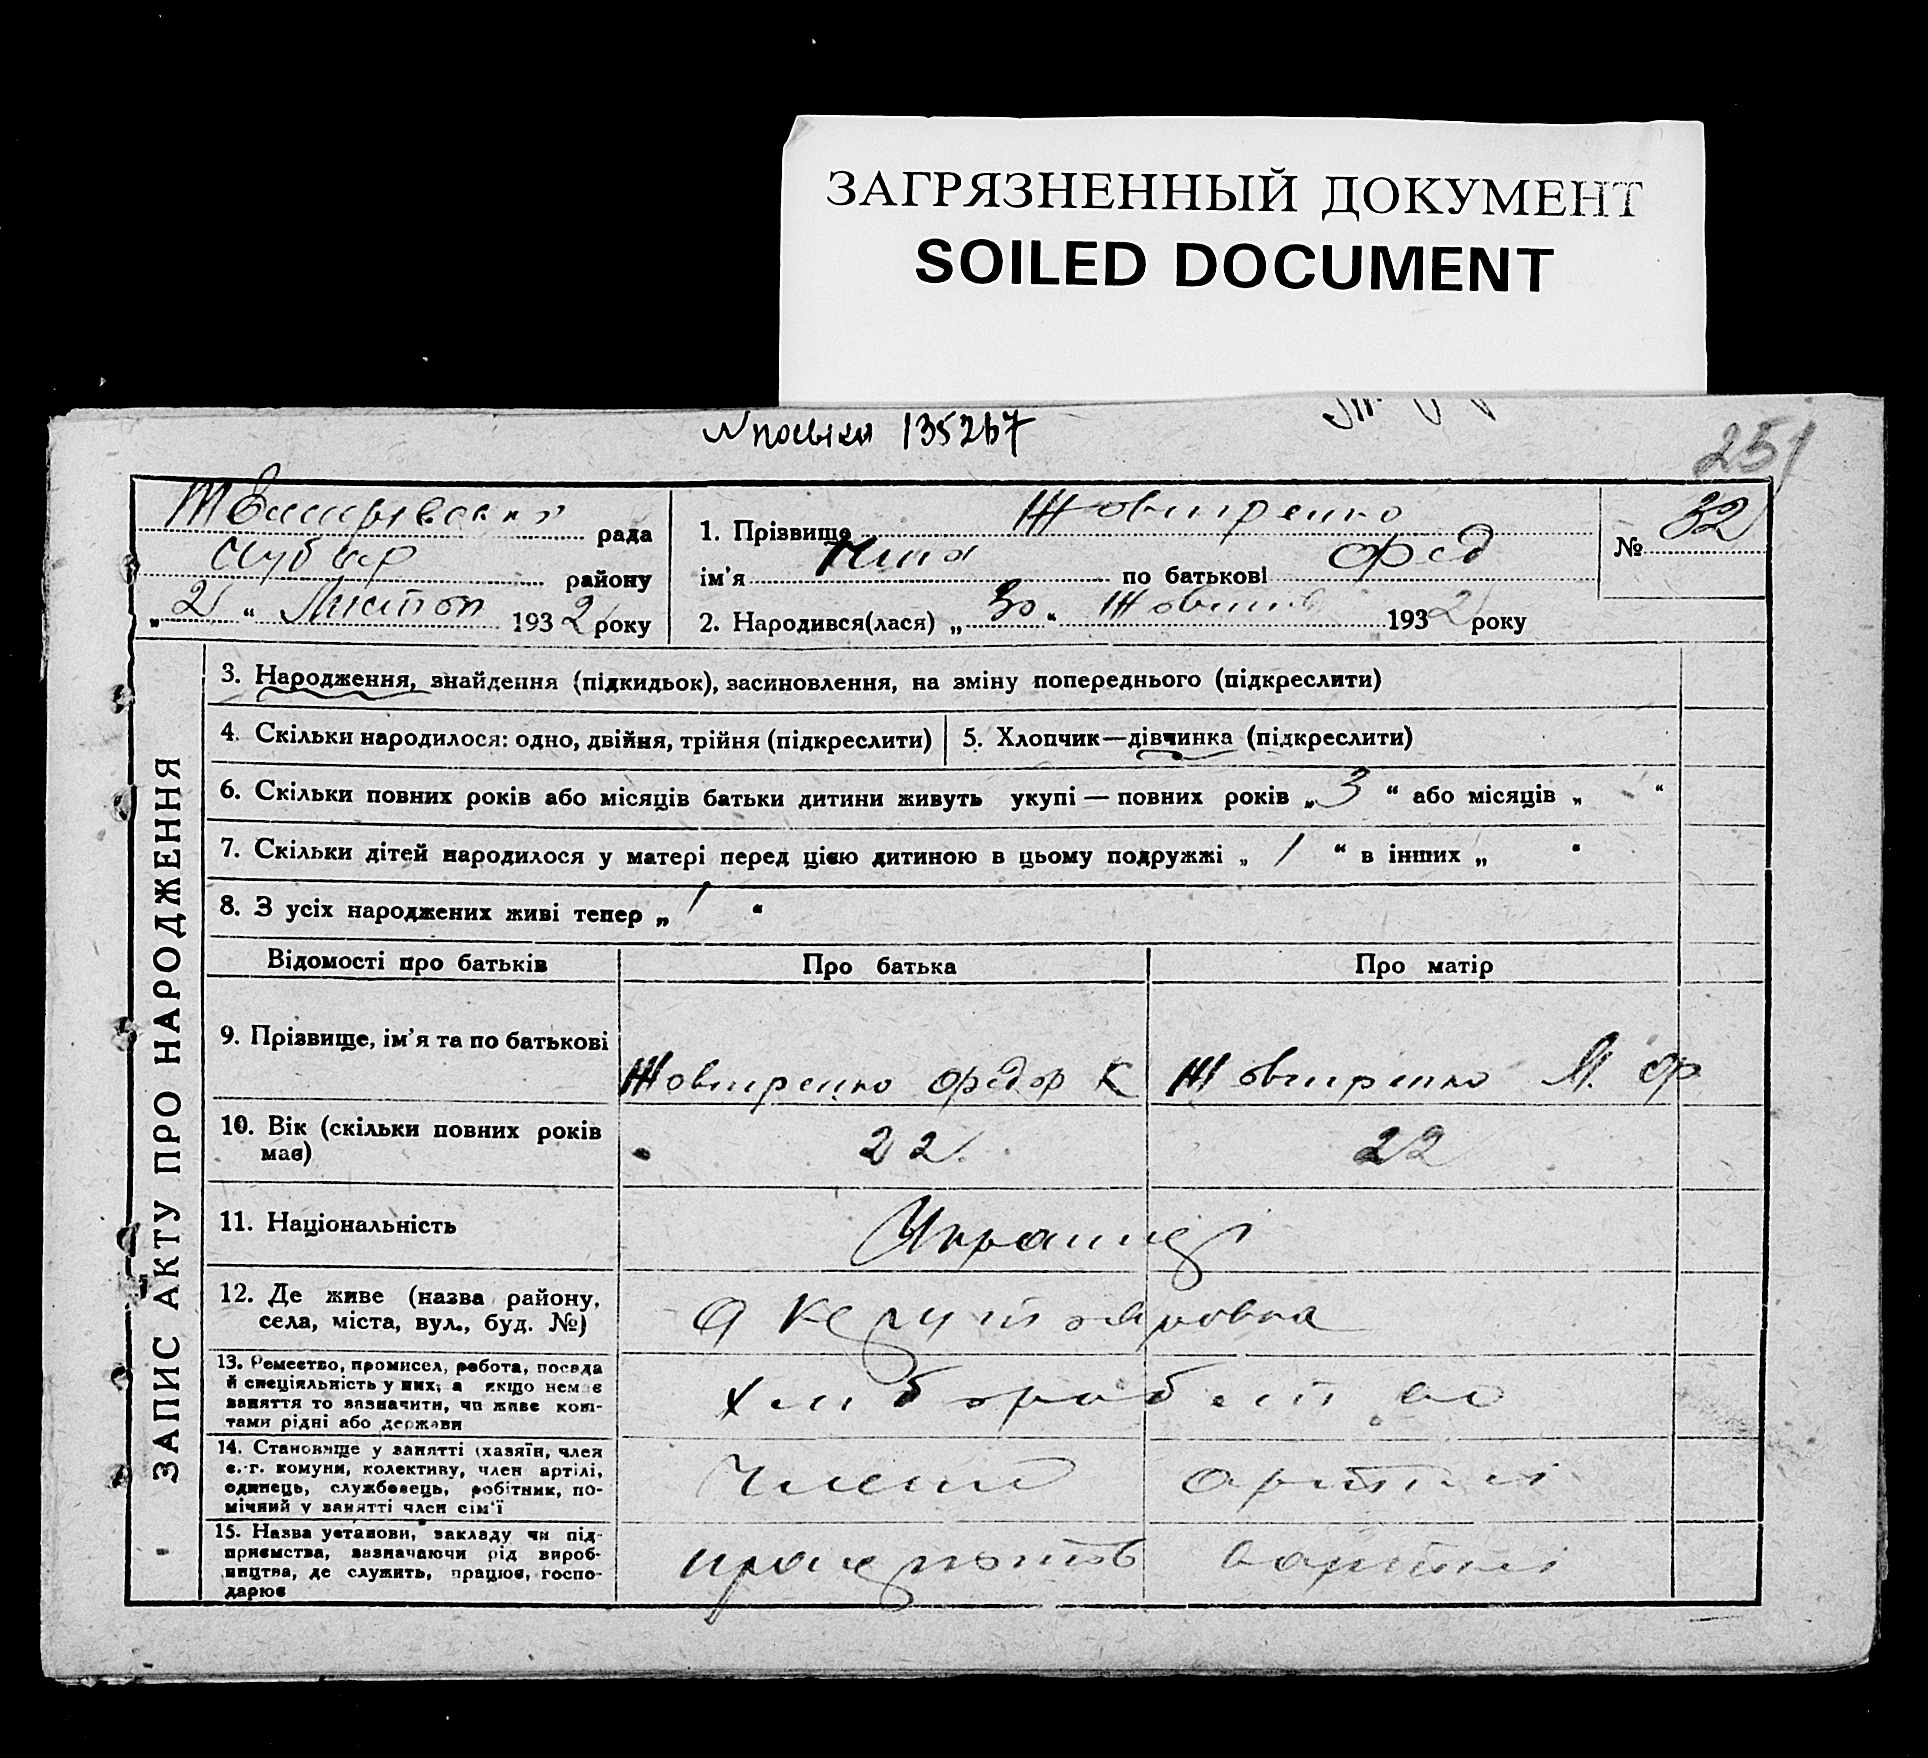 ЗАГРЯЗНЕННЫЙ ДОКУМЕНТ
SOILED DOCUMENT
135267
251
рада
Чубар району
„ 2 “ Листоп 1932 року
1. Прізвище Жовтренко
ім'я Ніна по батькові Фед
2. Народився(лася) „ 30 “ Жовтня 1932 року
№ 32
ЗАПИС АКТУ ПРО НАРОДЖЕННЯ
3. Народження, знайдення (підкидьок), засиновлення, на зміну попереднього (підкреслити)
4. Скільки народилося: одно, двійня, трійня (підкреслити)
5. Хлопчик—дівчинка (підкреслити)
6. Скільки повних років або місяців батьки дитини живуть укупі — повних років „ 3 “ або місяців „ “
7. Скільки дітей народилося у матері перед цією дитиною в цьому подружжі „ 1 “ в інших „ “
8. З усіх народжених живі тепер „ 1 “
Відомості про батьків
Про батька
Про матір
9. Прізвище, ім'я та по батькові
Жовтренко Федор К
Жовтренко М. Ф
10. Вік (скільки повних років
має)
22
22
11. Національність
Украінці
12. Де живе (назва району,
села, міста, вул., буд. №)
13. Ремество, промисел, робота, посада
й спеціяльність у них; а якщо немає
заняття то зазначити, чи живе кош-
тами рідні або держави
хліборобство
14. Становище у занятті (хазяїн, член
с.-г. комуни, колективу, член артілі,
одинець, службовець, робітник, по-
мічний у занятті член сім'ї
члени артілі
15. Назва установи, закладу чи під-
приємства, зазначаючи рід вироб-
ництва, де служить, працює, госпо-
дарює
працюють вартілі